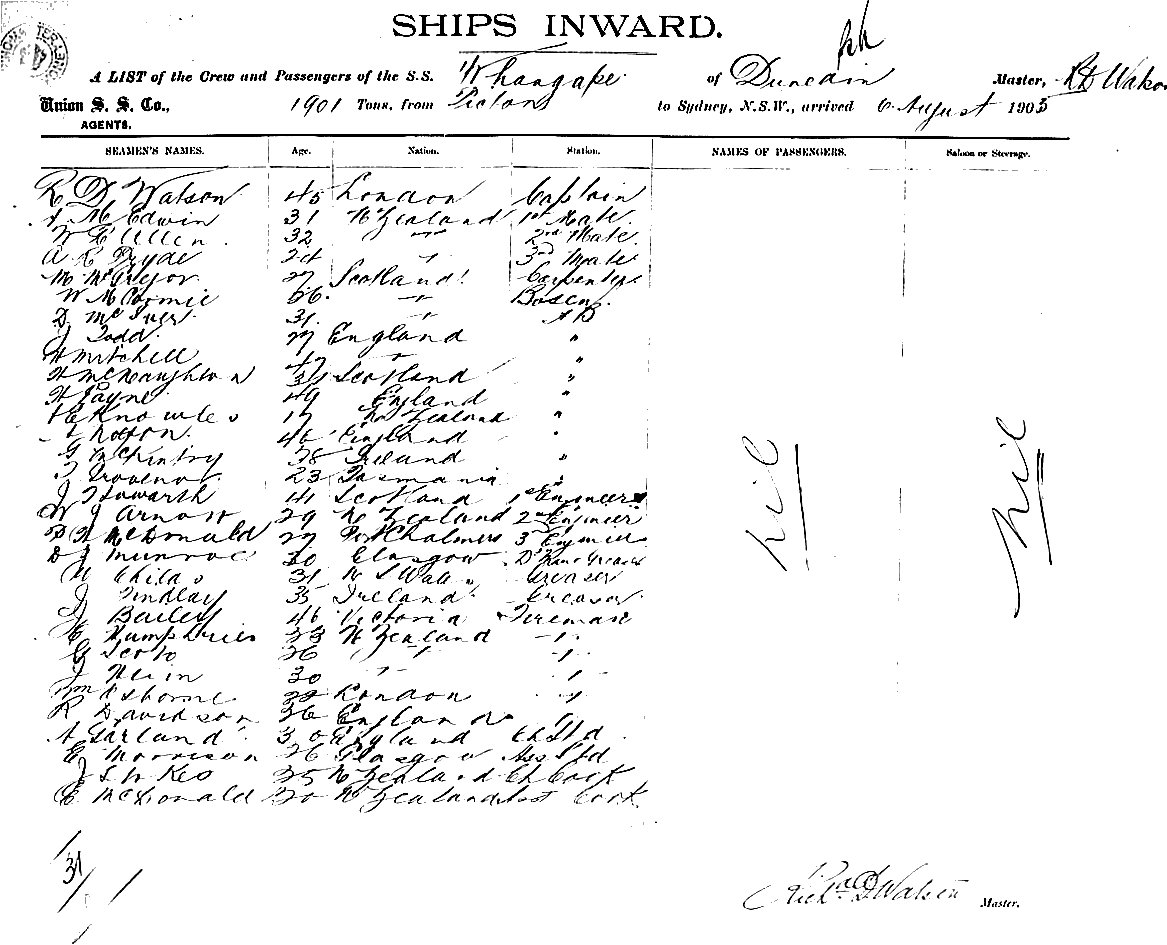 SHIPS INWARD.
A LIST of the Crew and Passengers of the S.S. Whangape of Dunedin Master, R D Watson
Union S. S. Co., 1901 Tons, from Picton to Sydney, N.S.W., arrived 6 August 1903
AGENTS.
SEAMEN'S NAMES. Age. Nation. Station. NAMES OF PASSENGERS. Saloon or Steerage.
R D Watson 45 London Captain
M Edwin 31 N Zealand 1st Mate
Allen 32 " 2nd Mate
A R Pryde 24 " 3rd Mate
M McGregor 27 Scotland Carpenter
W McCormie 56 " Bosen
D 31 " AB
J Todd 27 England "
H Mitchell 47 " "
H McNaughton Scotland "
H Payne 49 England "
Knowles N Zealand "
46 England "
G McKintry 28 Ireland "
T Grovenor 23 Tasmania "
J Howarth 41 Scotland 1st Engineer
W J Arnott 29 N Zealand 2nd Engineer
McDonald 27 Port Chalmers 3rd Engineer
D J Munroe 30 Glasgow Greaser
Childs 31 N S Wales Greaser
J Findlay 35 Ireland Greaser
J Bailey 46 Victoria Fireman
C Humphries 33 N Zealand "
G Scott 26 " "
J 30 " "
Wm Osborne London "
R Davidson 26 England "
A Garland 30 England Ch Std
E Morrison 26 Glasgow Ass Std
J 35 N Zealand Ch Cook
E McDonald 20 N Zealand Asst Cook
Nil Nil
31
Richd D Watson Master.